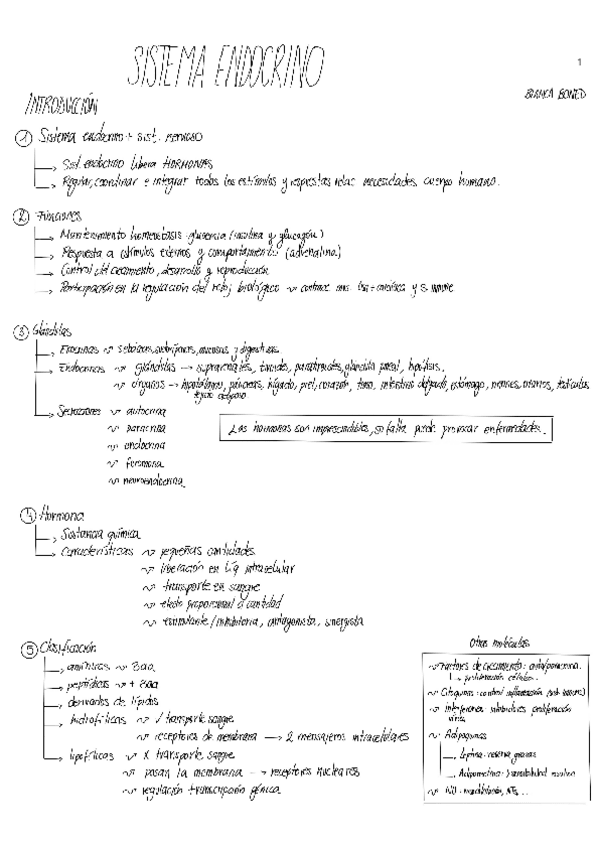 SISTEMA ENDOCRINO
1
BLANCA BONED
INTRODUCCIÓN
① Sistema endocrino + sist. nervioso
→ Sist. endocrino libera HORMONAS
→ Regular, coordinar e integrar todos los estímulos y respuestas relac. necesidades cuerpo humano.
② Funciones
→ Mantenimiento homeostasis: glucemia (insulina y glucagón)
→ Respuesta a estímulos externos y comportamiento (adrenalina)
→ Control del crecimiento, desarrollo y reproducción
→ Participación en la regulación del reloj biológico
③ Glándulas
→ Exocrinas ~ sebáceas, sudoríparas, mucosas y digestivas.
→ Endocrinas ~ glándulas → suprarrenales, tiroides, paratiroides, glándula pineal, hipófisis.
~ órganos → hipotálamo, páncreas, hígado, piel, corazón, timo, intestino delgado, estómago, riñones, ovarios, testículos
tejido adiposo
→ Secreciones ~ autocrina
~ paracrina
~ endocrina
~ feromona
~ neuroendocrina
Las hormonas son imprescindibles, su falta puede provocar enfermedades.
④ Hormona
→ Sustancia química
→ Características ~ pequeñas cantidades
~ liberación en líq
~ transporte en sangre
~ efecto proporcional a cantidad
~ estimulante/inhibitoria, antagonista, sinergista
⑤ Clasificación
→ amínicas ~ 3aa
→ peptídicas ~ + 3aa
→ derivados de lípidos
→ hidrofílicas ~ √ transporte sangre
~ receptores de membrana → 2 mensajeros intracelulares
→ lipofílicas ~ X transporte sangre
~ pasan la membrana → receptores nucleares
~ regulación transcripción génica
Otras moléculas
~ Factores de crecimiento: auto/paracrina.
↳ proliferación células.
~ Citoquinas: control inflamación
~ Interferones: inhibidores proliferación
vírica
~ Adipoquinas
→ Leptina: reserva grasas
→ Adiponectina: sensibilidad insulina
~ NO: vasodilatación, NTs...